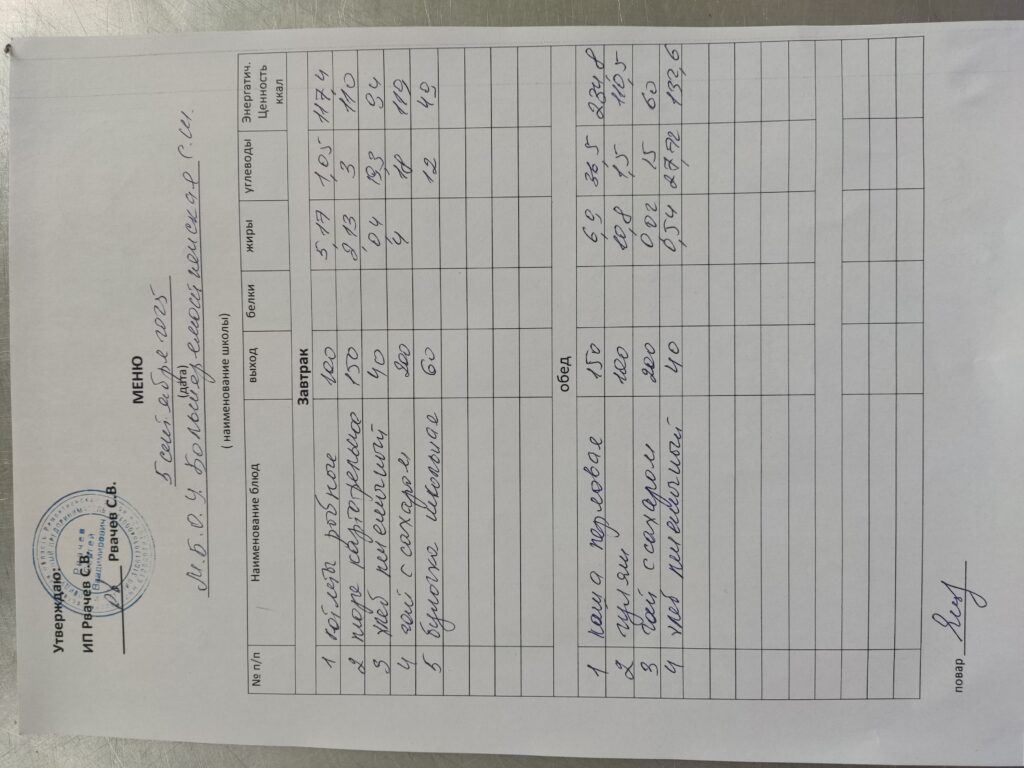 Утверждаю:
ИП Рвачев С.В.
Рвачев С.В.
МЕНЮ
5 сентября 2025
(дата)
М.Б.О.У Большеремонтненская С.Ш.
( наименование школы)
№ п/п Наименование блюд выход белки жиры углеводы Энергатич. Ценность ккал
Завтрак
1 котлета рыбная 100 5,17 1,05 117,4
2 пюре картофельное 150 2,13 3 110
3 хлеб пшеничный 40 ,04 19,3 94
4 чай с сахаром 200 4 18 119
5 булочка школьная 60 12 49
обед
1 каша перловая 150 6,9 36,5 234,8
2 гуляш 100 10,8 1,5 110,5
3 чай с сахаром 200 0,02 15 60
4 хлеб пшеничный 40 0,54 27,72 132,6
повар